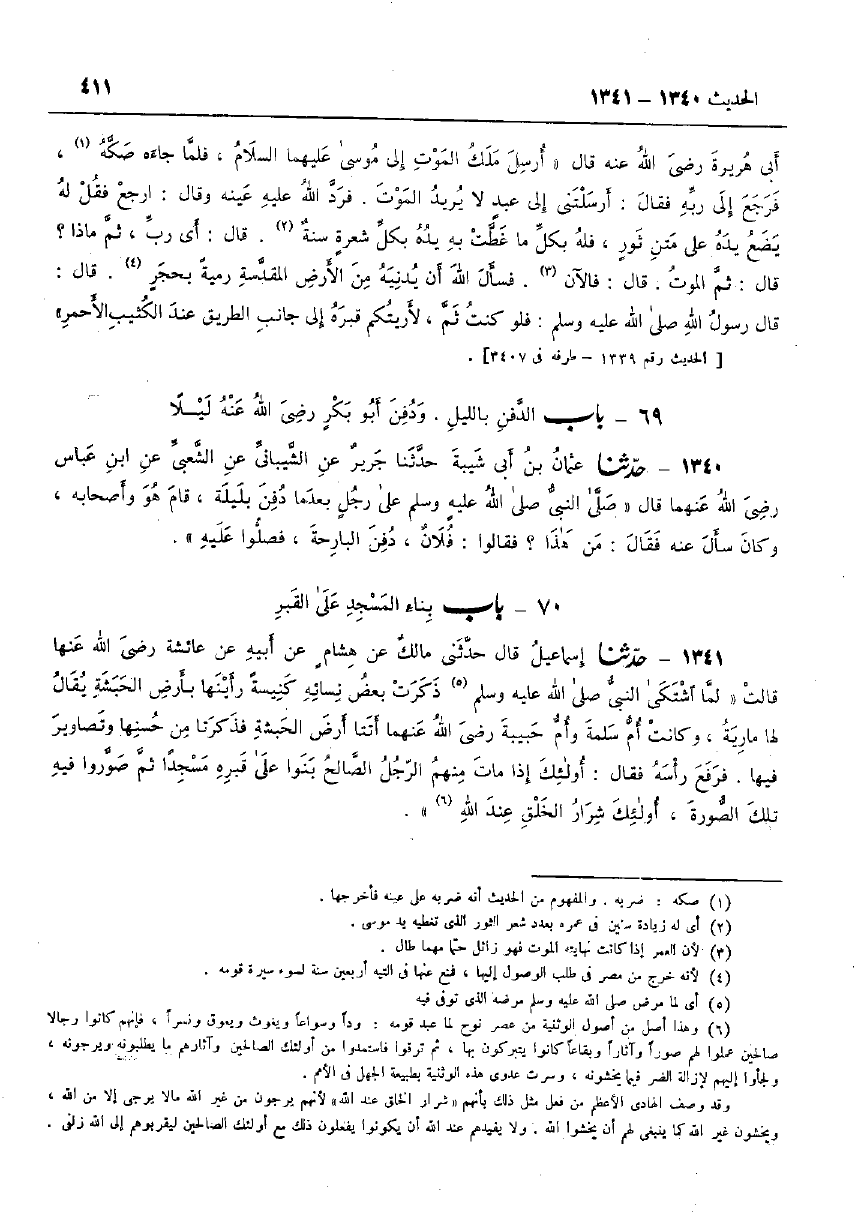 الحديث ١٣٤٠ – ١٣٤١
٤١١
أبى هريرةَ رضىَ اللهُ عنه قال « أُرسِلَ مَلَكُ المَوْتِ إلى مُوسىٰ عليهما السلامُ ، فلمَّا جاءَه صَكَّهُ (١) ،
فَرَجَعَ إلى ربِّهِ فقالَ : أرسَلْتَنى إلى عبدٍ لا يُريدُ المَوْتَ . فردَّ اللهُ عليهِ عَينه وقال : ارجعْ فقُلْ لهُ
يَضَعُ يدَهُ على مَتنِ ثَورٍ ، فلهُ بكلِّ ما غَطَّتْ بهِ يدُهُ بكلِّ شعرةٍ سنةٌ (٢) . قال : أى ربِّ ، ثمَّ ماذا ؟
قال : ثمَّ الموتُ . قال : فالآن (٣) . فسألَ اللهَ أن يُدنِيَهُ مِنَ الأرضِ المقدَّسةِ رميةً بحجَرٍ (٤) . قال :
قال رسولُ اللهِ صلىٰ الله عليه وسلم : فلو كنتُ ثَمَّ ، لأريتُكم قبرَهُ إلى جانبِ الطريقِ عندَ الكَثيبِ الأحمرِ»
[ الحديث رقم ١٣٣٩ – طرفه فى ٣٤٠٧] .
٦٩ – باب الدَّفنِ بالليلِ . وَدُفِنَ أبُو بَكْرٍ رضِىَ اللهُ عَنْهُ لَيْــلًا
١٣٤٠ – حدّثنا عثمانُ بنُ أبى شيبةَ حدَّثَنا جَريرٌ عنِ الشَّيبانىِّ عنِ الشَّعبىِّ عنِ ابنِ عباس
رضِىَ اللهُ عَنهما قال « صَلَّىٰ النبىُّ صلىٰ اللهُ عليهِ وسلم علىٰ رجُلٍ بعدَما دُفِنَ بلَيلَة ، قامَ هُوَ وأصحابه ،
وكانَ سألَ عنه فَقَالَ : مَن هٰذا ؟ فقالوا : فُلَانٌ ، دُفِنَ البارِحةَ ، فصلُّوا عَلَيهِ » .
٧٠ – باب بِناءِ المَسْجِدِ عَلَىٰ القَبرِ
١٣٤١ – حدّثنا إسماعيلُ قال حدَّثَنى مالكٌ عن هِشامٍ عن أبيهِ عن عائشةَ رضىَ الله عَنها
قالتْ « لمَّا اشْتَكىٰ النبىُّ صلىٰ الله عليه وسلم (٥) ذَكرَتْ بعضُ نِسائِهِ كَنِيسةً رأيْنَها بأرضِ الحَبَشَةِ يُقالُ
لها مارِيَةُ ، وكانتْ أُمُّ سَلمةَ وأُمُّ حَبيبةَ رضىَ اللهُ عَنهما أتَتا أرضَ الحَبشةِ فذكرَتا مِن حُسنِها وتَصاويرَ
فيها . فرفَعَ رأْسَهُ فقال : أُولٰئِكَ إذا ماتَ مِنهمُ الرّجُلُ الصَّالحُ بَنَوا علىٰ قَبرِهِ مَسْجِدًا ثمَّ صَوَّروا فيهِ
تِلكَ الصُّورةَ ، أُولٰئِكَ شِرَارُ الخَلْقِ عِندَ اللهِ (٦) » .
(١) صكه : ضربه . والمفهوم من الحديث أنه ضربه على عينه فأخرجها .
(٢) أى له زيادة سنين فى عمره بعدد شعر الثور الذى تغطيه يد موسى .
(٣) لأن العمر إذا كانت نهايته الموت فهو زائل حتما مهما طال .
(٤) لأنه خرج من مصر فى طلب الوصول إليها ، فمنع عنها فى التيه أربعين سنة لسوء سيرة قومه .
(٥) أى لما مرض صلى الله عليه وسلم مرضه الذى توفى فيه
(٦) وهذا أصل من أصول الوثنية من عصر نوح لما عبد قومه : وداً وسواعاً ويغوث ويعوق ونسراً ، فإنهم كانوا رجالا
صالحين عملوا لهم صوراً وآثاراً وبقاعاً كانوا يتبركون بها ، ثم ترقوا فاستمدوا من أولئك الصالحين وآثارهم ما يطلبونه ويرجونه ،
ولجأوا إليهم لإزالة الضر فيما يخشونه ، وسرت عدوى هذه الوثنية بطبيعة الجهل فى الأمم .
وقد وصف الهادى الأعظم من فعل مثل ذلك بأنهم « شرار الخلق عند الله» لأنهم يرجون من غير الله مالا يرجى إلا من الله ،
ويخشون غير الله كما ينبغى لهم أن يخشوا الله . ولا يفيدهم عند الله أن يكونوا يفعلون ذلك مع أولئك الصالحين ليقربوهم إلى الله زلفى .